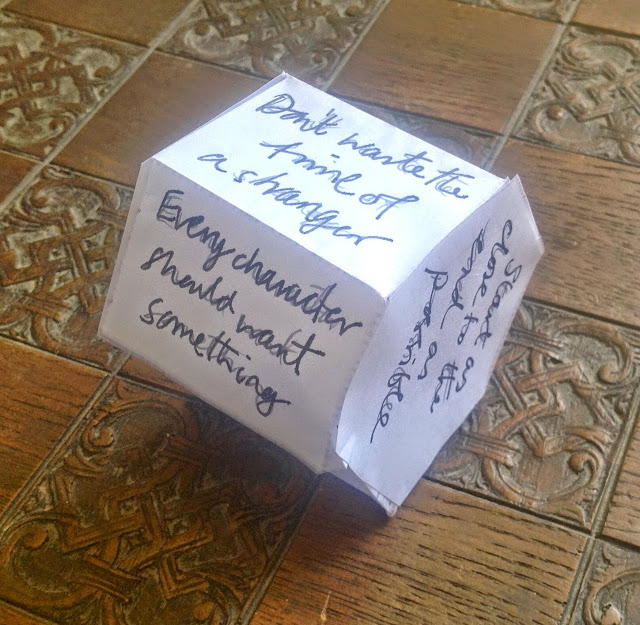 Don't waste the
time of
a stranger
Every character
should want
something
Start as
close to the
end as
possible